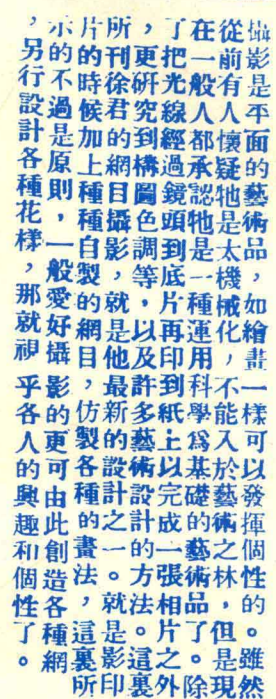 攝影是平面的藝術品，如繪畫一樣可以發揮個性的。雖然
從前有人懷疑牠是太機械化，不能入於藝術之林，但是現
在一般人都承認牠是一種運用科學爲基礎的藝術品了。除
了把光線經過鏡頭到底片再印到紙上以完成一張相片之外
，更研究到構圖色調等，以及許多藝術設計的方法。這裏
所刊徐君的網目攝影，就是他最新的設計之一。就是影印
片的時候加上種種自製的網目，仿製各種的畫法，這裏所
示的不過是原則，一般愛好攝影的更可由此創造各種網
，另行設計各種花樣，那就視乎各人的興趣和個性了。